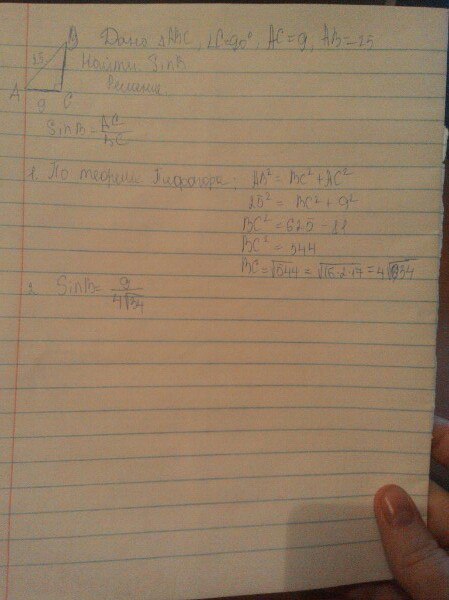 Дано △ABC, ∠C=90°, AC=9, AB=25
Найти: SinB
Решение
B
25
A
9 C
SinB = AC/BC
1. По теореме Пифагора: AB² = BC² + AC²
25² = BC² + 9²
BC² = 625 - 81
BC² = 544
BC = √544 = √16·2·17 = 4√34
2. SinB = 9/4√34